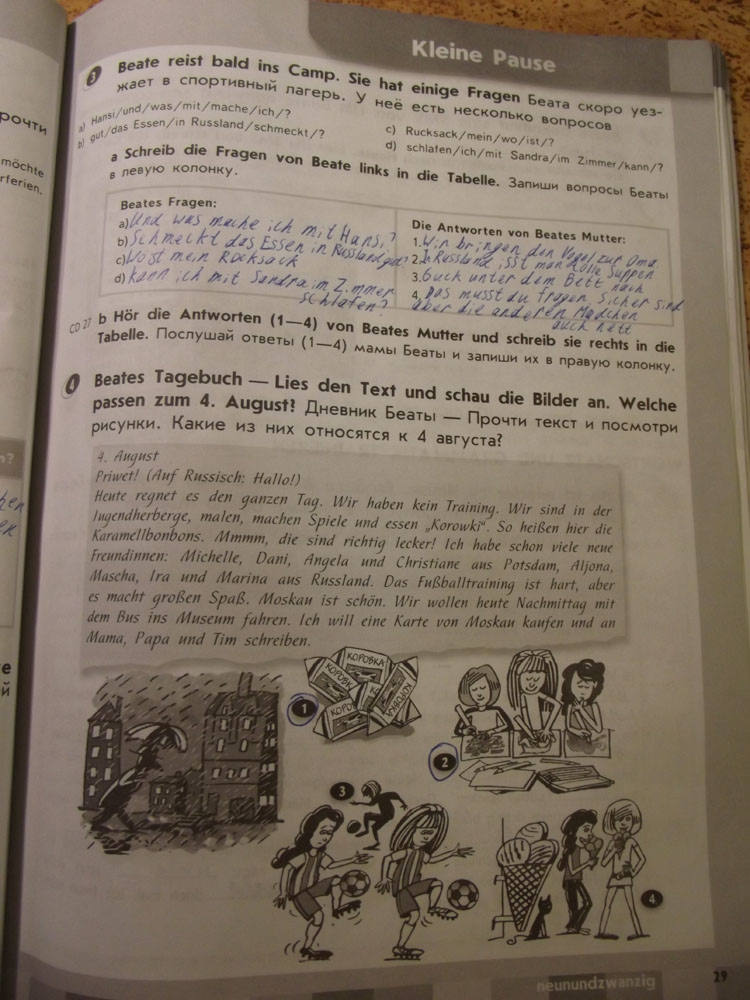 Kleine Pause
3 Beate reist bald ins Camp. Sie hat einige Fragen Беата скоро уез-
жает в спортивный лагерь. У неё есть несколько вопросов
a) Hansi/und/was/mit/mache/ich/?
b) gut/das Essen/in Russland/schmeckt/?
c) Rucksack/mein/wo/ist/?
d) schlafen/ich/mit Sandra/im Zimmer/kann/?
a Schreib die Fragen von Beate links in die Tabelle. Запиши вопросы Беаты
в левую колонку.
Beates Fragen:
a) Und was mache ich mit Hansi?
b) Schmeckt das Essen in Russland gut?
c) Wo ist mein Rocksack
d) kann ich mit Sandra im Zimmer
schlafen?
Die Antworten von Beates Mutter:
1. Wir bringen den Vogel zur Oma
2. In Russland isst man tolle Suppen
3. Guck unter dem Bett nach
4. Das musst du fragen, sicher sind
aber die anderen Mädchen
auch nett
CD 27 b Hör die Antworten (1—4) von Beates Mutter und schreib sie rechts in die
Tabelle. Послушай ответы (1—4) мамы Беаты и запиши их в правую колонку.
4 Beates Tagebuch — Lies den Text und schau die Bilder an. Welche
passen zum 4. August? Дневник Беаты — Прочти текст и посмотри
рисунки. Какие из них относятся к 4 августа?
4. August
Priwet! (Auf Russisch: Hallo!)
Heute regnet es den ganzen Tag. Wir haben kein Training. Wir sind in der
Jugendherberge, malen, machen Spiele und essen „Korowki“. So heißen hier die
Karamellbonbons. Mmmm, die sind richtig lecker! Ich habe schon viele neue
Freundinnen: Michelle, Dani, Angela und Christiane aus Potsdam, Aljona,
Mascha, Ira und Marina aus Russland. Das Fußballtraining ist hart, aber
es macht großen Spaß. Moskau ist schön. Wir wollen heute Nachmittag mit
dem Bus ins Museum fahren. Ich will eine Karte von Moskau kaufen und an
Mama, Papa und Tim schreiben.
КОРОВКА
1
2
3
4
neunundzwanzig
29